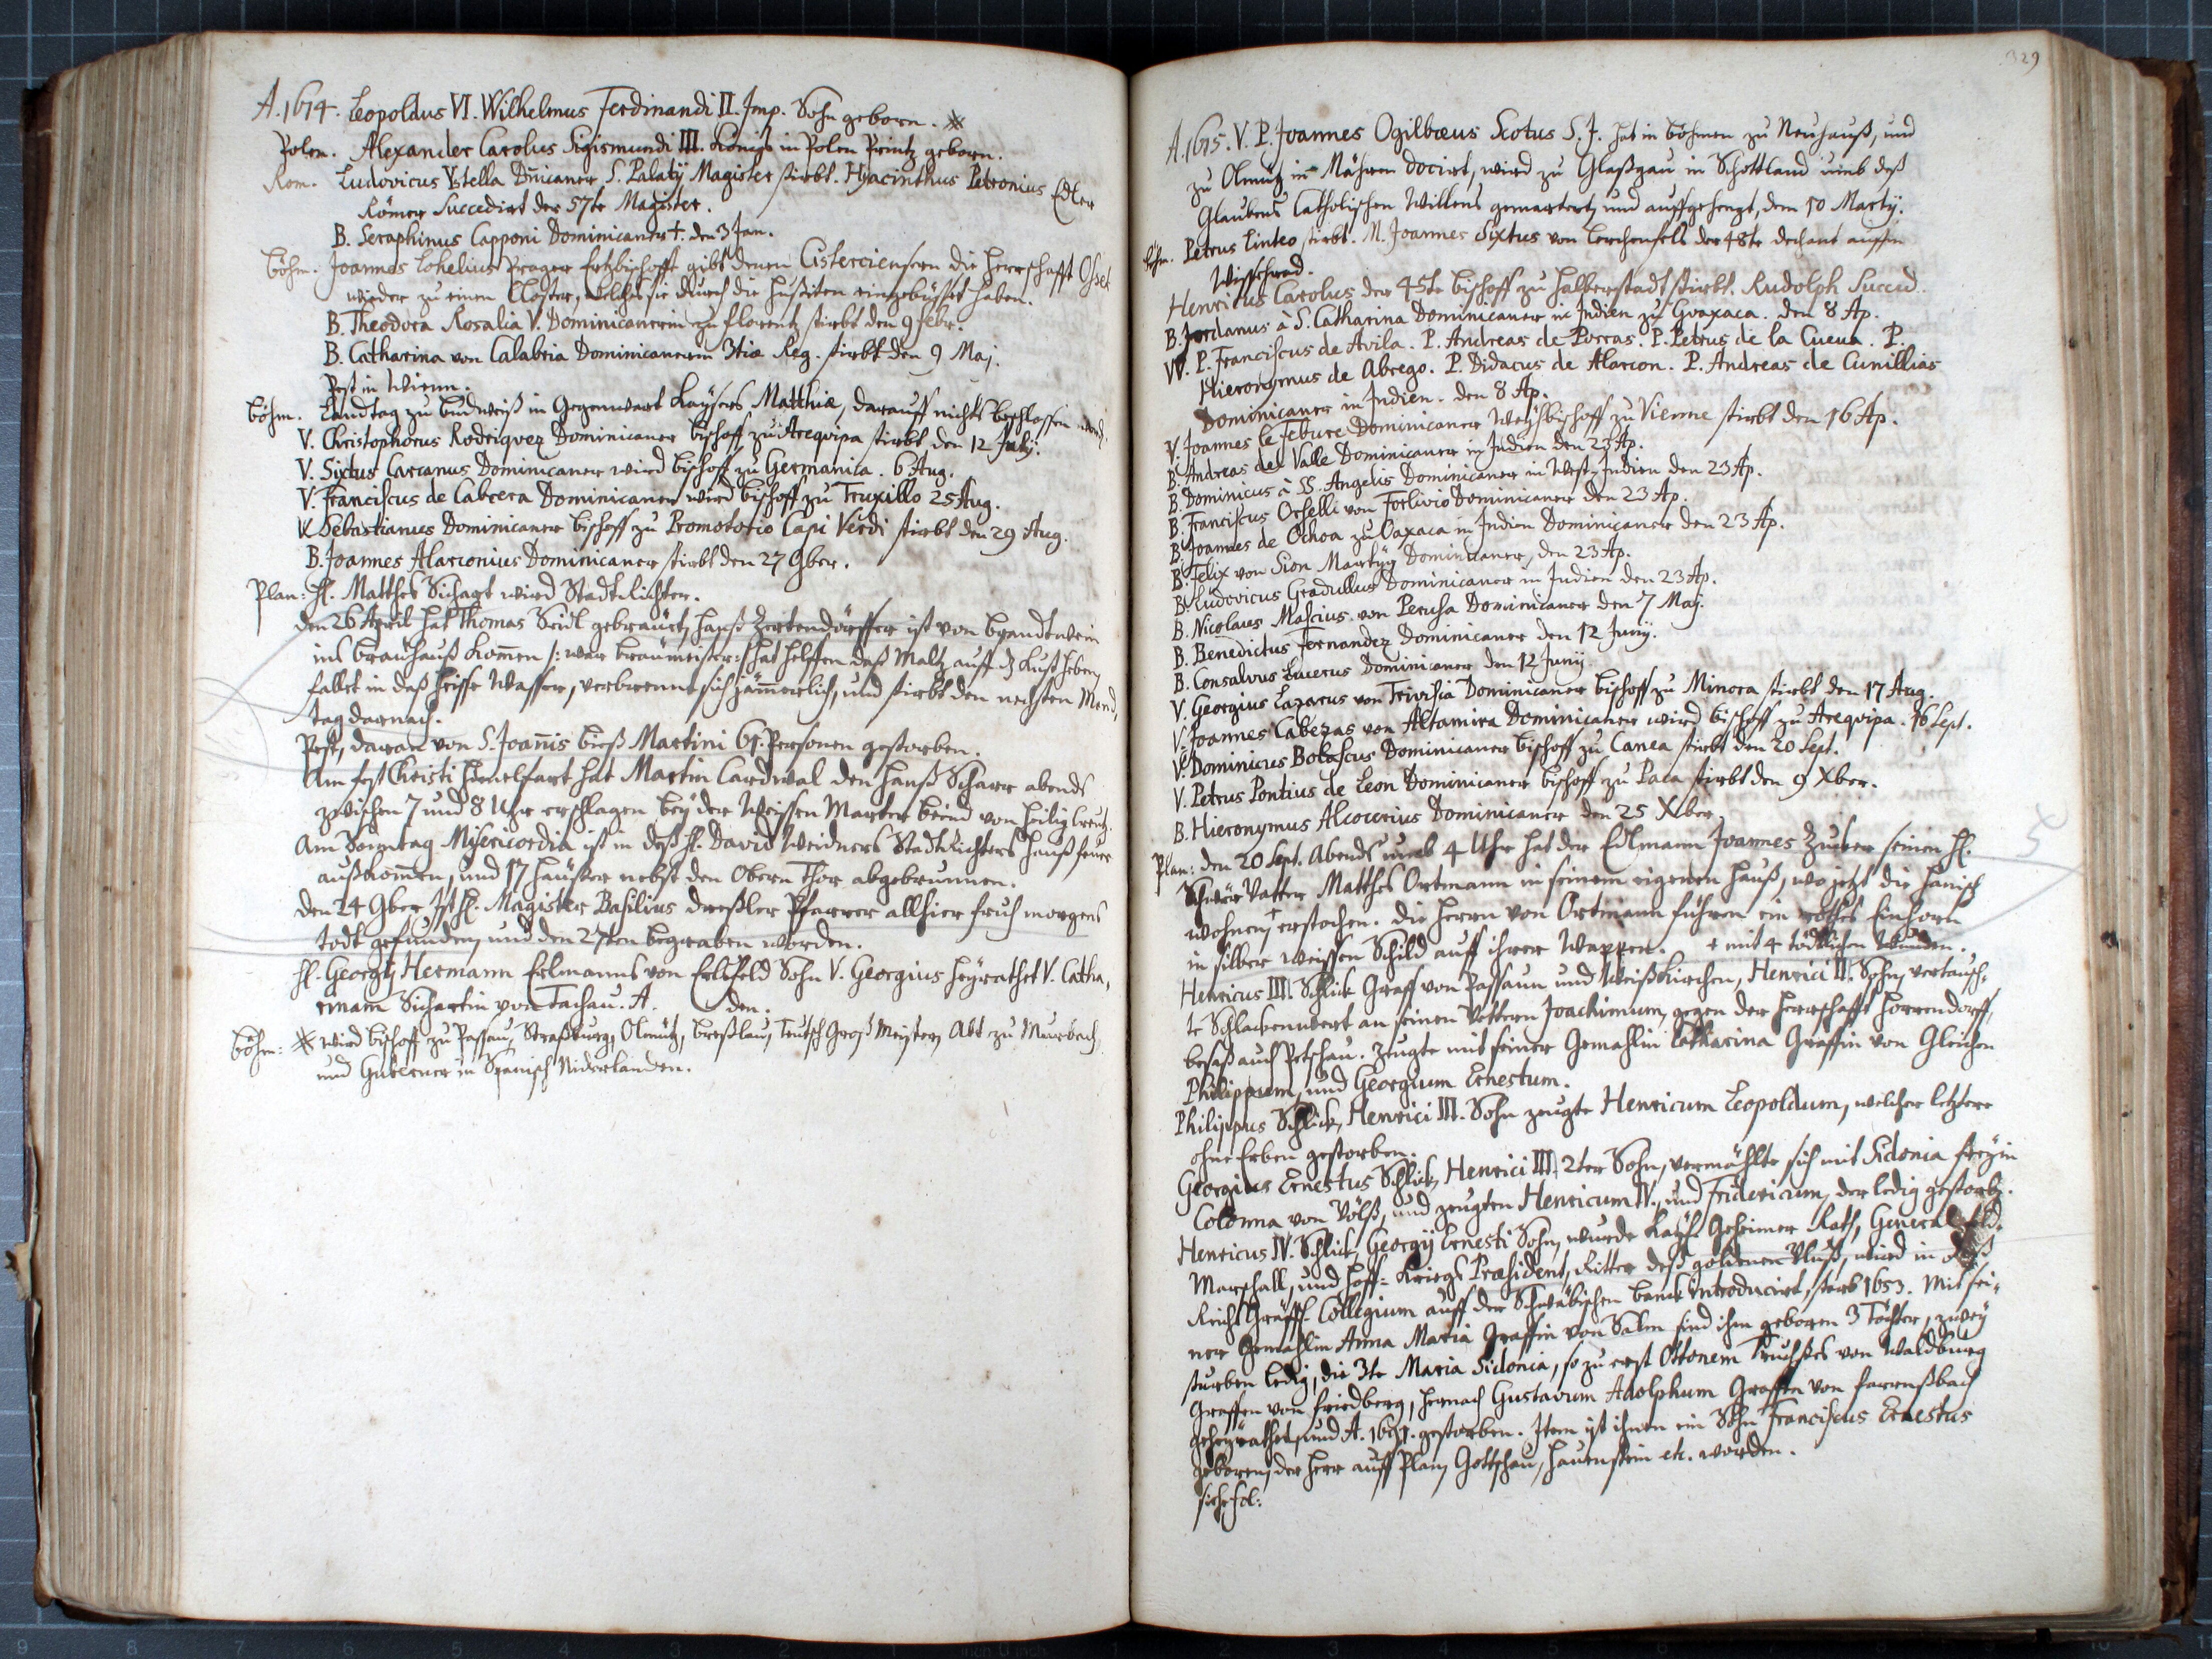 A. 1614. Leopoldus VI. Wilhelmus Ferdinandi II. Imp. Sohn geborn. ※
Polen. Alexander Carolus Sigismundi III. Königs in Polen Printz geborn.
Rom. Ludovicus Ystella Dnicaner S. Palatij Magister stirbt. Hyacinthus Petronius Edler
Römer Succedirt der 57te Magister.
B. Seraphinus Capponi Dominicaner †. den 3 Jan.
böhm. Joannes Lohelius Prager Ertzbischoff gibt denen Cisterciensern die Herrschafft Ossek
wieder zu einen Closter, welches sie durch die Hussiten eingebüsset haben.
B. Theodora Rosalia V. Dominicanerin zu Florentz stirbt den 9 febr.
B. Catharina von Calabria Dominicanerin 3tiæ Reg. stirbt den 9 Maj.
Pest in Wienn.
böhm. Landtag zu budweiß in Gegenwart Kaysers Matthiæ, darauff nichts beschlossen word.
V. Christophorus Rodriqvez Dominicaner bischoff zu Areqvipa stirbt den 12 July.
V. Sixtus Carcanus Dominicaner wird bischoff zu Germanica. 6 Aug.
V. Franciscus de Cabrera Dominicaner wird bischoff zu Truxillo 25 Aug.
V. Sebastianus Dominicaner bischoff zu Promotorio Capi Verdi stirbt den 29 Aug.
B. Joannes Alarconius Dominicaner stirbt den 27 9ber.
Plan: H. Matthes Sichart wird Stadtrichter.
den 26 April hat Thomas Seidl gebräuet, Hanß Zertendörffer ist von brandtwein
ins brauhauß kommen /: war bräumeister :/ hat helffen daß Maltz auff d Kust heben,
fallet in daß heisse Wasser, verbrennt sich jämmerlich, und stirbt den nechsten Mon-
tag darnach.
Pest, daran von S. Joannis bieß Martini 61. Personen gestorben.
Am fest Christi Himelfart hat Martin Cardinal den Hanß Scharr abends
zwischen 7 und 8 Uhr erschlagen bey der Weissen Marter beind von heilig Creutz.
Am Sonntag Misericordia ist in deß H. David Weidners Stadtrichters hauß feuer
außkommen, und 17 Häuser nebst den Obern Thor abgebrunnen.
den 24 9ber ist H. Magister Basilius Dreßler Pfarrer allhier fruh morgens
todt gefunden, und den 27ten begraben worden.
H. Georgij Hermann Erlmanns von Erlsfeld Sohn V. Georgius heyrathet V. Catha-
rinam Sichartin von Tachau. A. den.
böhm: ※ wird bischoff zu Passau, Straßburg, Olmütz, breßlau, Teutsch Groß Meister, Abt zu Muurbach,
und Guberner in Spanisch Niderlanden.
329
A. 1615. V. P. Joannes Ogilbæus Scotus S. J. hat in böhmen zu Neuhauß, und
zu Olmütz in Mähren docirt, wird zu Glaßgau in Schottland umb deß
Glaubens Catholischen Willens gemartert, und auffgehengt, den 10 Martij.
böhm. Petrus Linteo stirbt. M. Joannes Sixtus von Lerchenfels der 48te dechant auffn
Wisscherad.
Henricus Carolus der 45te bischoff zu Halberstadt stirbt. Rudolph Succed.
B. Jordanus à S. Catharina Dominicaner in Indien zu Gvaxaca. den 8 Ap.
VV. P. Franciscus de Avila. P. Andreas de Porras. P. Petrus de la Cueva. P.
Hieronymus de Abrego. P. Didacus de Alarcon. P. Andreas de Cunillias
Dominicaner in Indien. den 8 Ap.
V. Joannes le Febure Dominicaner Weyhbischoff zu Vienne stirbt den 16 Ap.
B. Andreas del Valle Dominicaner in Indien den 23 Ap.
B. Dominicus à SS. Angelis Dominicaner in West-Indien den 23 Ap.
B. Franciscus Orselli von Forlivio Dominicaner den 23 Ap.
B. Joannes de Ochoa zu Oaxaca in Indien Dominicaner den 23 Ap.
B. Felix von Sion Martyr Dominicaner, den 23 Ap.
B. Ludovicus Gradullus Dominicaner in Indien den 23 Ap.
B. Nicolaus Mascius von Perusa Dominicaner den 7 Maj.
B. Benedictus Fernandez Dominicaner den 12 Junij.
B. Consalvus Lucerus Dominicaner den 12 Junij
V. Georgius Lazarus von Trivisia Dominicaner bischoff zu Minora stirbt den 17 Aug.
V. Joannes Cabezas von Altamira Dominicaner wird bischoff zu Areqvipa. 16 Sept.
V. Dominicus Bolascus Dominicaner bischoff zu Canea stirbt den 20 Sept.
V. Petrus Pontius de Leon Dominicaner bischoff zu Paca stirbt den 9 Xber.
B. Hieronymus Alcocerius Dominicaner den 25 Xber.
Plan: den 20 Sept. Abends umb 4 Uhr hat der Edlmann Joannes Zucker seinen H.
Schwär Vatter Matthes Ortmann in seinem eigenen Hauß, wo jetzt die Hanisch
wohnen, + erstochen. die Herrn von Ortmann führen ein rothes Einhorn
in silber weissen Schild auff ihrer Wappen. + mit 4 tödtlichen Wunden.
Henricus III. Schlick Graff von Passaun und Weißkirchen, Henrici II. Sohn, vertausch-
te Schlackenwert an seinen Vettern Joachimum, gegen der Herrschafft Horrendorff,
besaß auch Petschau. Zeugte mit seiner Gemahlin Catharina Graffin von Gleichen
Philippum, und Georgium Ernestum.
Philippus Schlick, Henrici III. Sohn zeugte Henricum Leopoldum, welcher letzter
ohne Erben gestorben.
Georgius Ernestus Schlick, Henrici III. 2ter Sohn, vermählte sich mit Sidonia freyin
Colonna von Völß, und zeugten Henricum IV., und Fridericum, der ledig gestorb.
Henricus IV. Schlick, Georgij Ernesti Sohn, wurde Kayßl. Geheimer Rath, General feld-
Marschall, und Hoff-Kriegs Præsident, Ritter deß goldenen Vluß, wird in daß
Reichs Gräffl. Collegium auff der Schwäbischen banck introducirt, starb 1653. Mit sei-
ner Gemahlin Anna Maria Graffin von Salm sind ihm geboren 3 Töchter, zwey
sturben ledig, die 3te Maria Sidonia, so zu erst Ottonem Truchses von Waldburg
Graffen von Friedberg, hernach Gustavum Adolphum Graffen von Farrnßbach
geheyrathet, und A. 1691. gestorben. Item ist ihnen ein Sohn Franciscus Ernestus
geboren, der Herr auff Plan, Gottschau, Hauenstein etc. worden.
siehe fol: